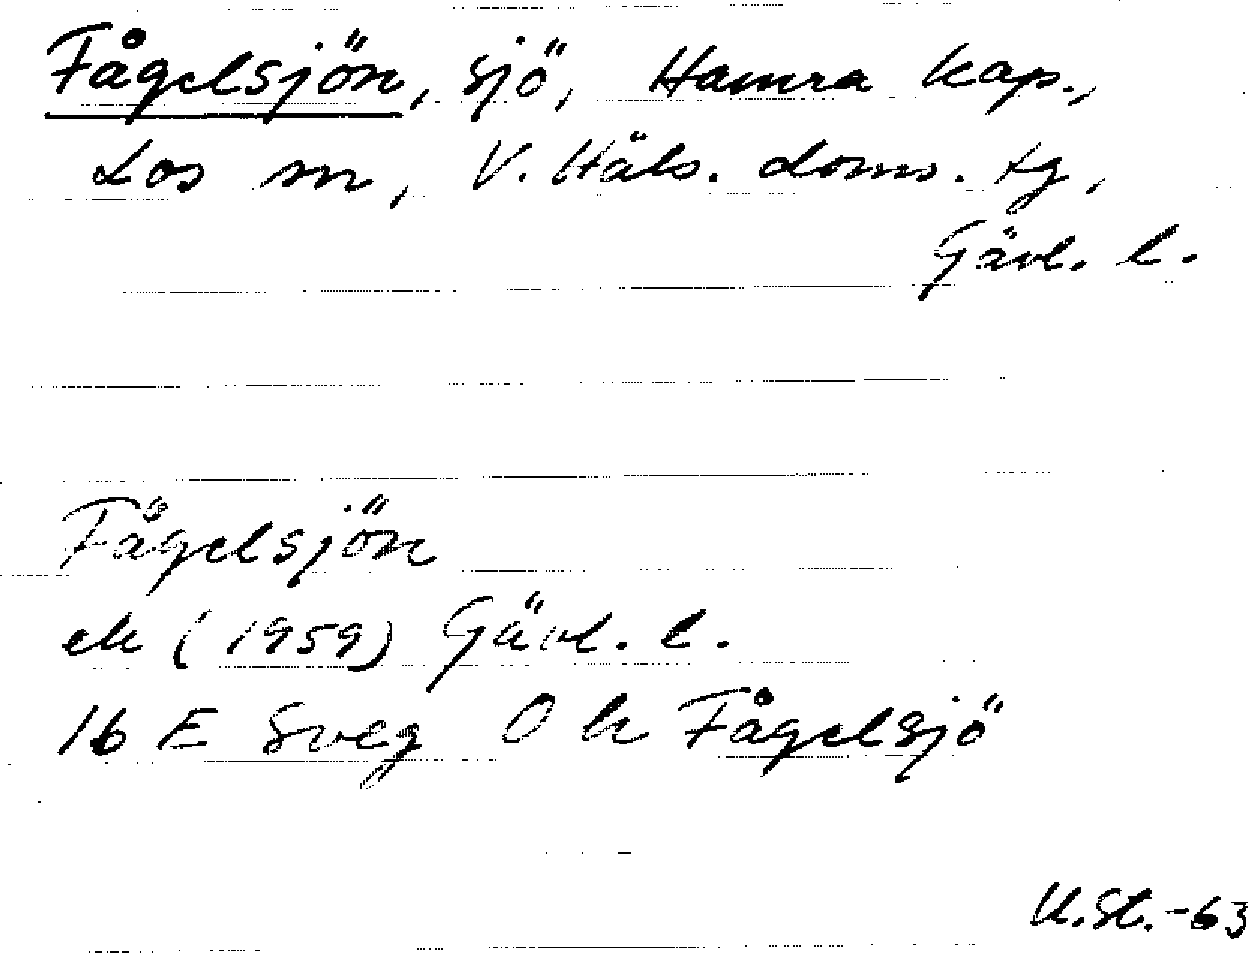 Fågelsjön, sjö, Hamra kap.,
Los sn, V. Häls. doms. tg,
Gävl. l.
Fågelsjön
ek (1959) Gävl. l.
16 E Sveg O h Fågelsjö
U.St.-63